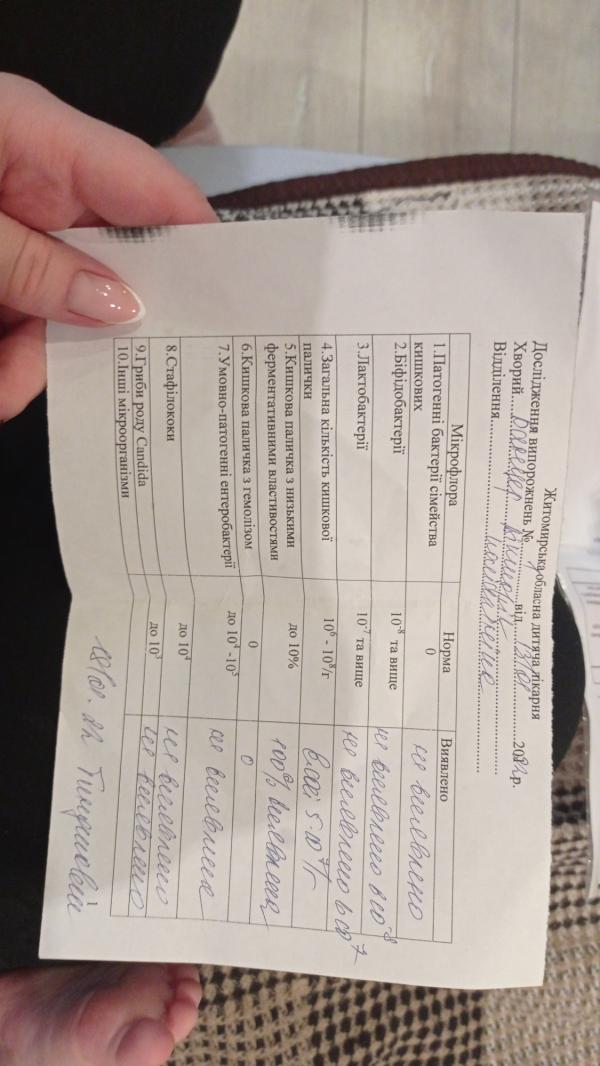 Житомирська обласна дитяча лікарня
Дослідження випорожнень № від 13/01 2022р.
Хворий
Відділення
Мікрофлора Норма Виявлено
1.Патогенні бактерії сімейства кишкових 0 не виявлено
2.Біфідобактерії 10⁻⁸ та вище не виявлено в 10⁻⁸
3.Лактобактерії 10⁻⁷ та вище не виявлено в 10⁷
4.Загальна кількість кишкової палички 10⁶ - 10⁸/г 5·10⁷/г
5.Кишкова паличка з низькими ферментативними властивостями до 10% 100%
6.Кишкова паличка з гемолізом 0 0
7.Умовно-патогенні ентеробактерії до 10⁴ -10⁵ не
8.Стафілококи до 10⁴ не виявлено
9.Гриби роду Candida до 10³ не виявлено
10.Інші мікроорганізми
18/01. 22